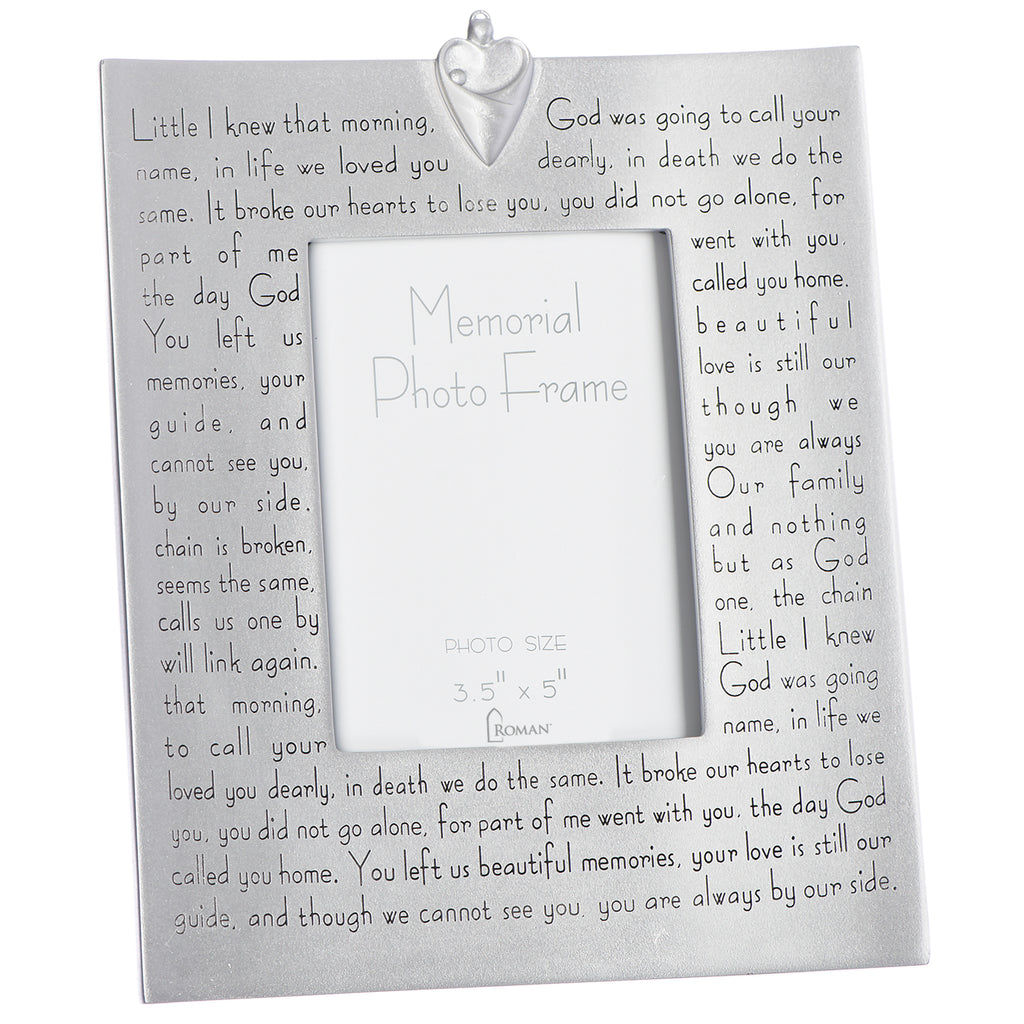 Little I knew that morning, God was going to call your
name, in life we loved you dearly, in death we do the
same. It broke our hearts to lose you, you did not go alone, for
part of me went with you.
the day God called you home.
You left us beautiful
memories, your love is still our
guide, and though we
cannot see you, you are always
by our side. Our family
chain is broken, and nothing
seems the same, but as God
calls us one by one, the chain
will link again. Little I knew
that morning, God was going
to call your name, in life we
loved you dearly, in death we do the same. It broke our hearts to lose
you, you did not go alone, for part of me went with you. the day God
called you home. You left us beautiful memories, your love is still our
guide, and though we cannot see you, you are always by our side.
Memorial
Photo Frame
PHOTO SIZE
3.5" x 5"
ROMAN™